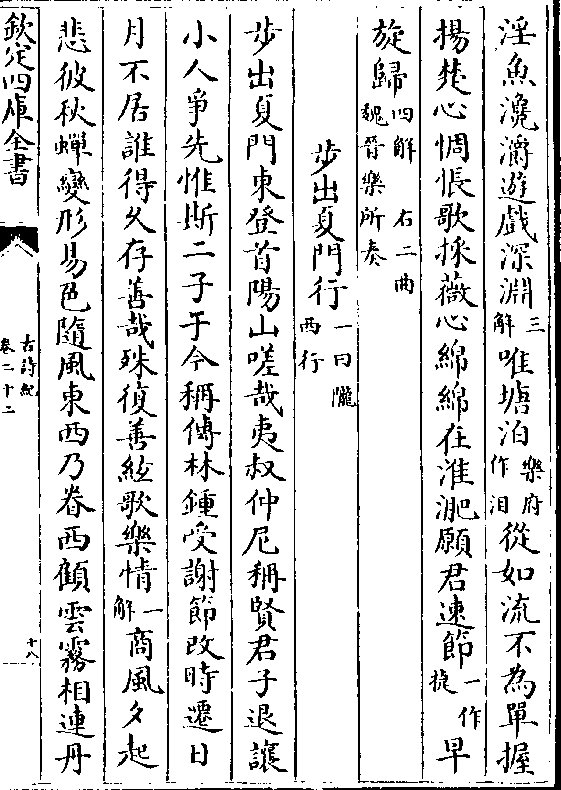 淫魚瀺灂遊戲深淵三解唯塘泊樂府作泪從如流不為單握
揚楚心惆悵歌採薇心綿綿在淮淝願君速節一作捷早
旋歸四解右二曲魏晉樂所奏
步出夏門行一曰隴西行
步出夏門東登首陽山嗟哉夷叔仲尼稱賢君子退讓
小人爭先惟斯二子于今稱傳林鍾受謝節改時遷日
月不居誰得久存善哉殊復善絃歌樂情一解商風夕起
悲彼秋蟬變形易色隨風東西乃眷西顧雲霧相連丹
欽定四庫全書
古詩紀
卷二十二
十八